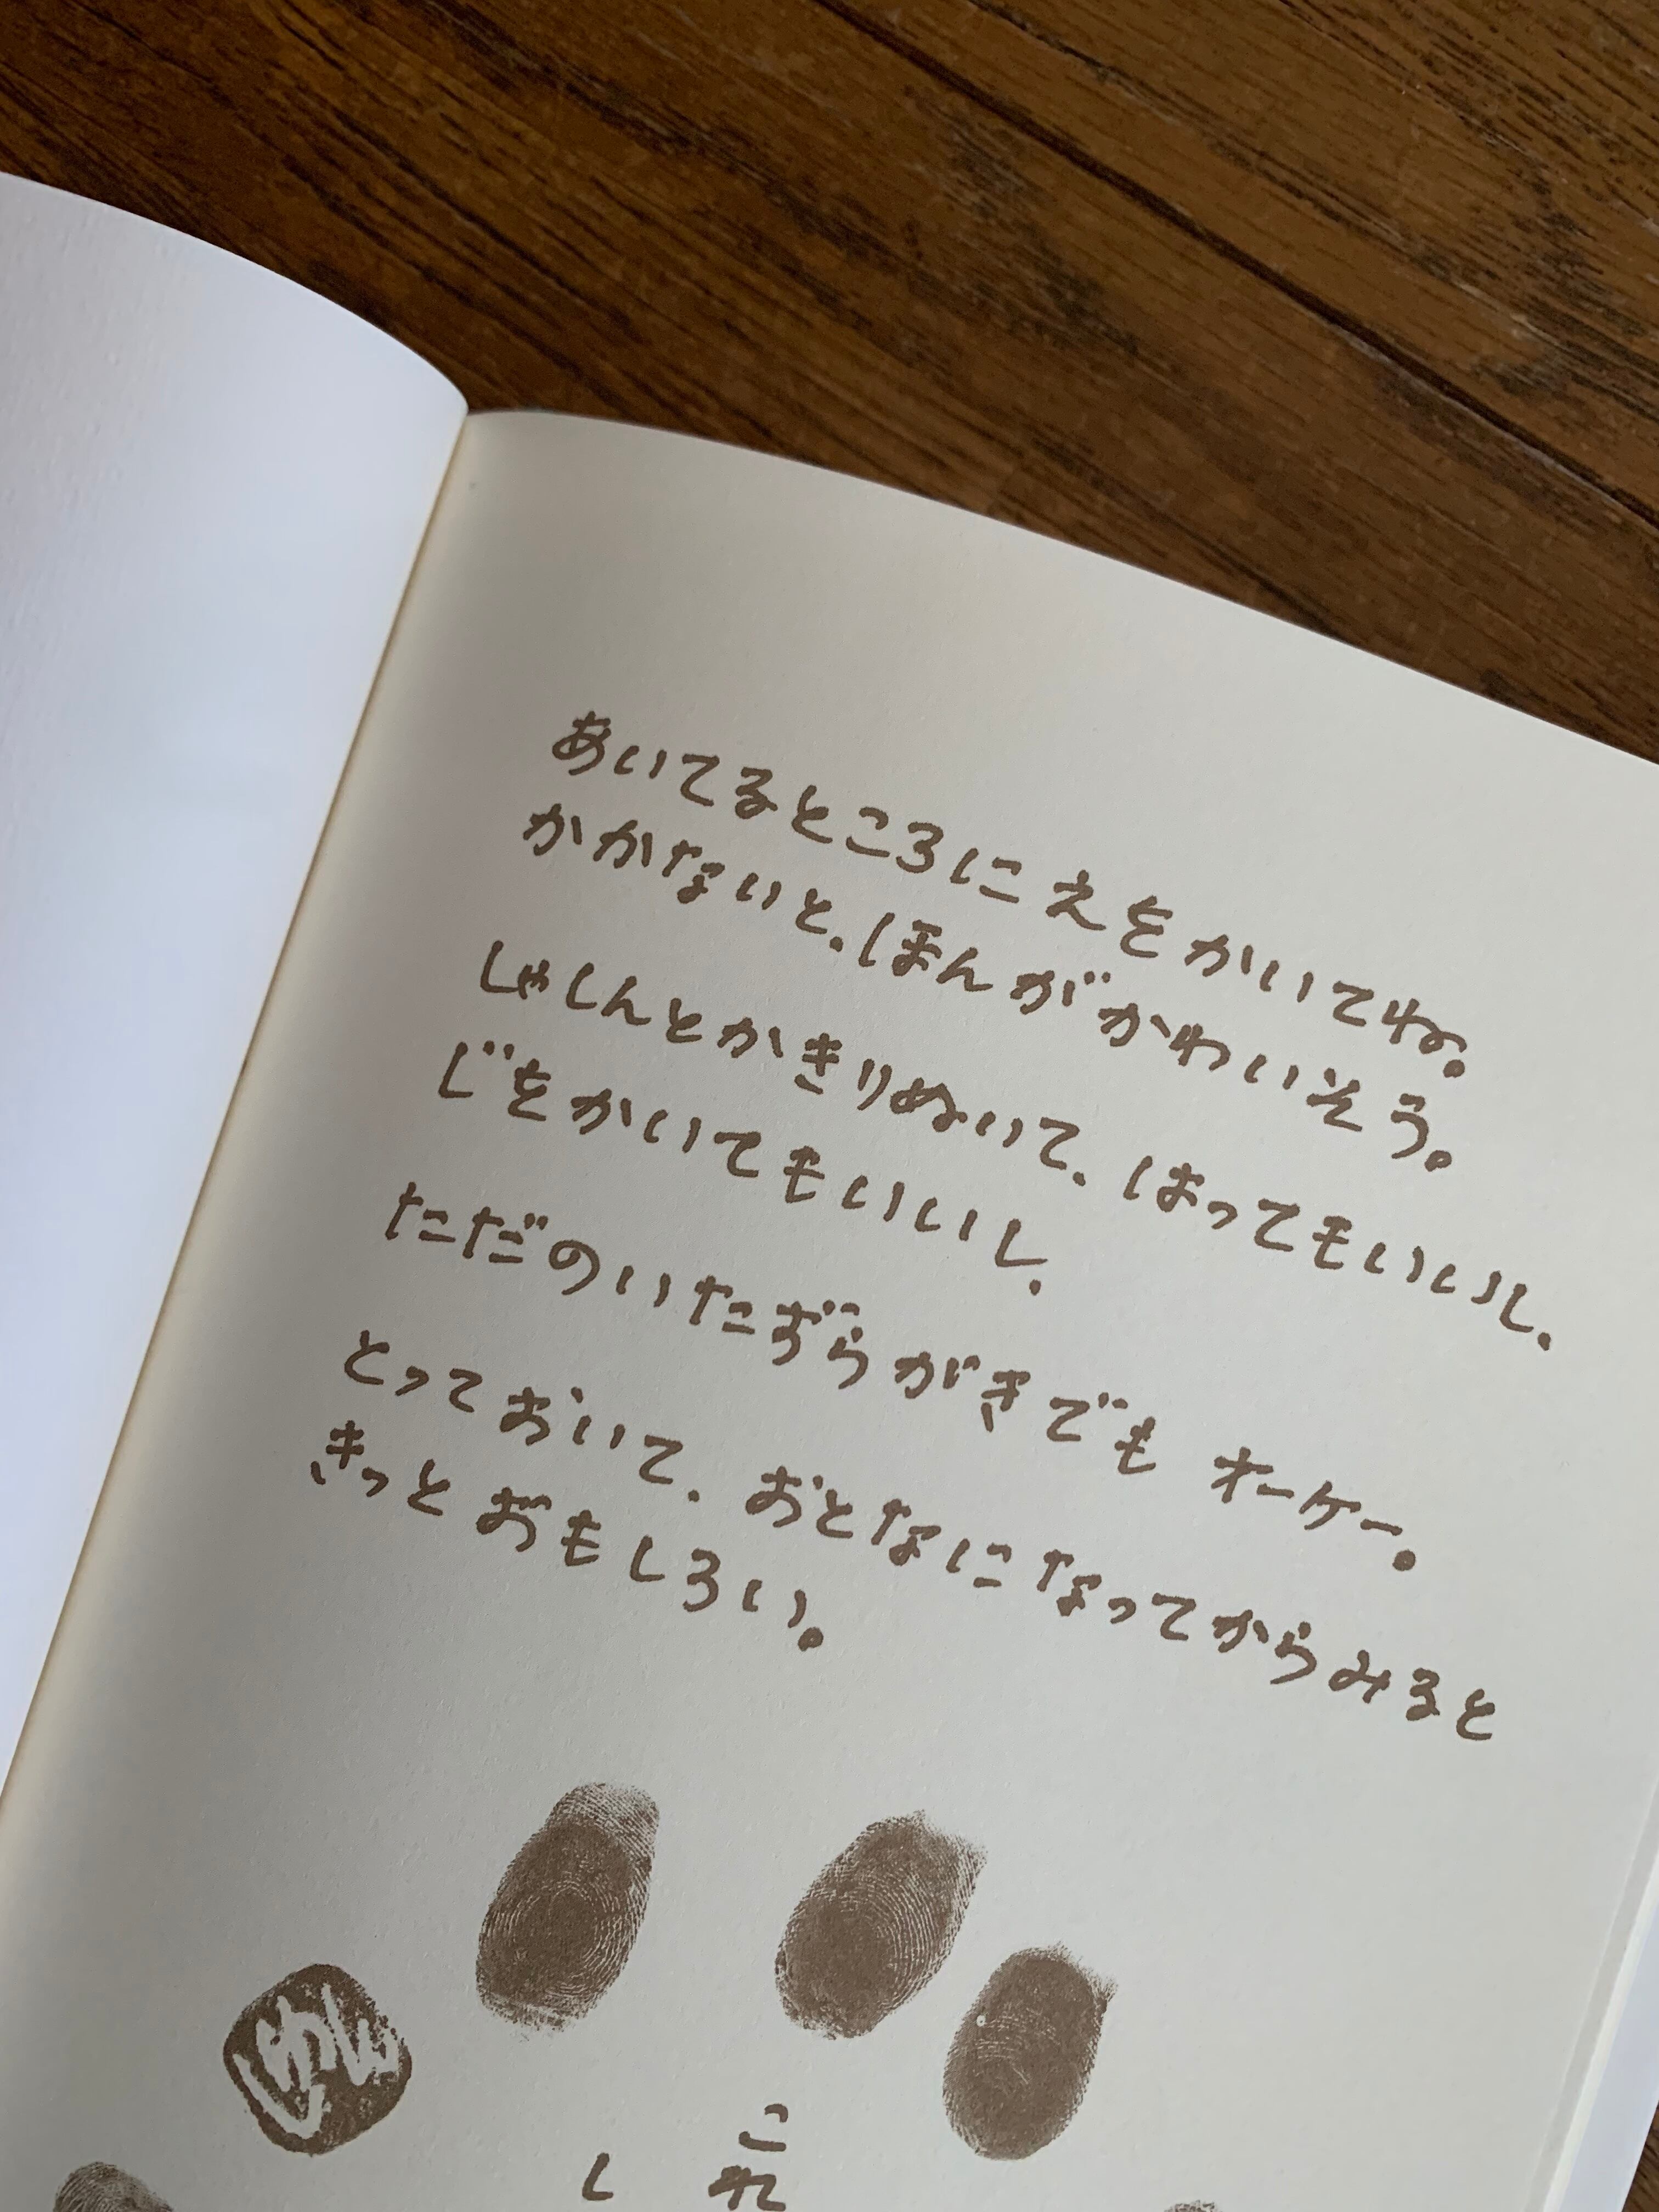 あいてるところに えを かいてね。
かかないと、ほんが かわいそう。
しゃしんとかきりぬいて、はってもいいし、
じをかいてもいいし、
ただのいたずらがきでも オーケー。
とっておいて、おとなになってからみると
きっと おもしろい。
これ
し